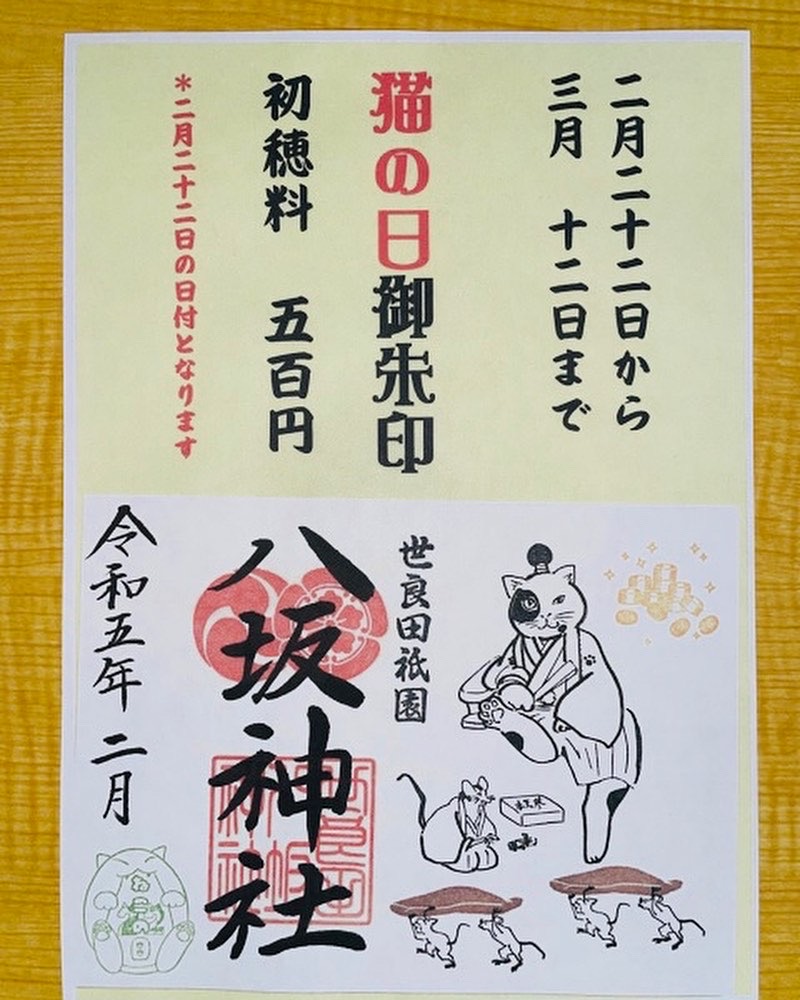 二月二十二日から
三月　十二日まで
猫の日御朱印
初穂料　五百円
＊二月二十二日の日付となります
世良田祇園
八坂神社
令和五年 二月